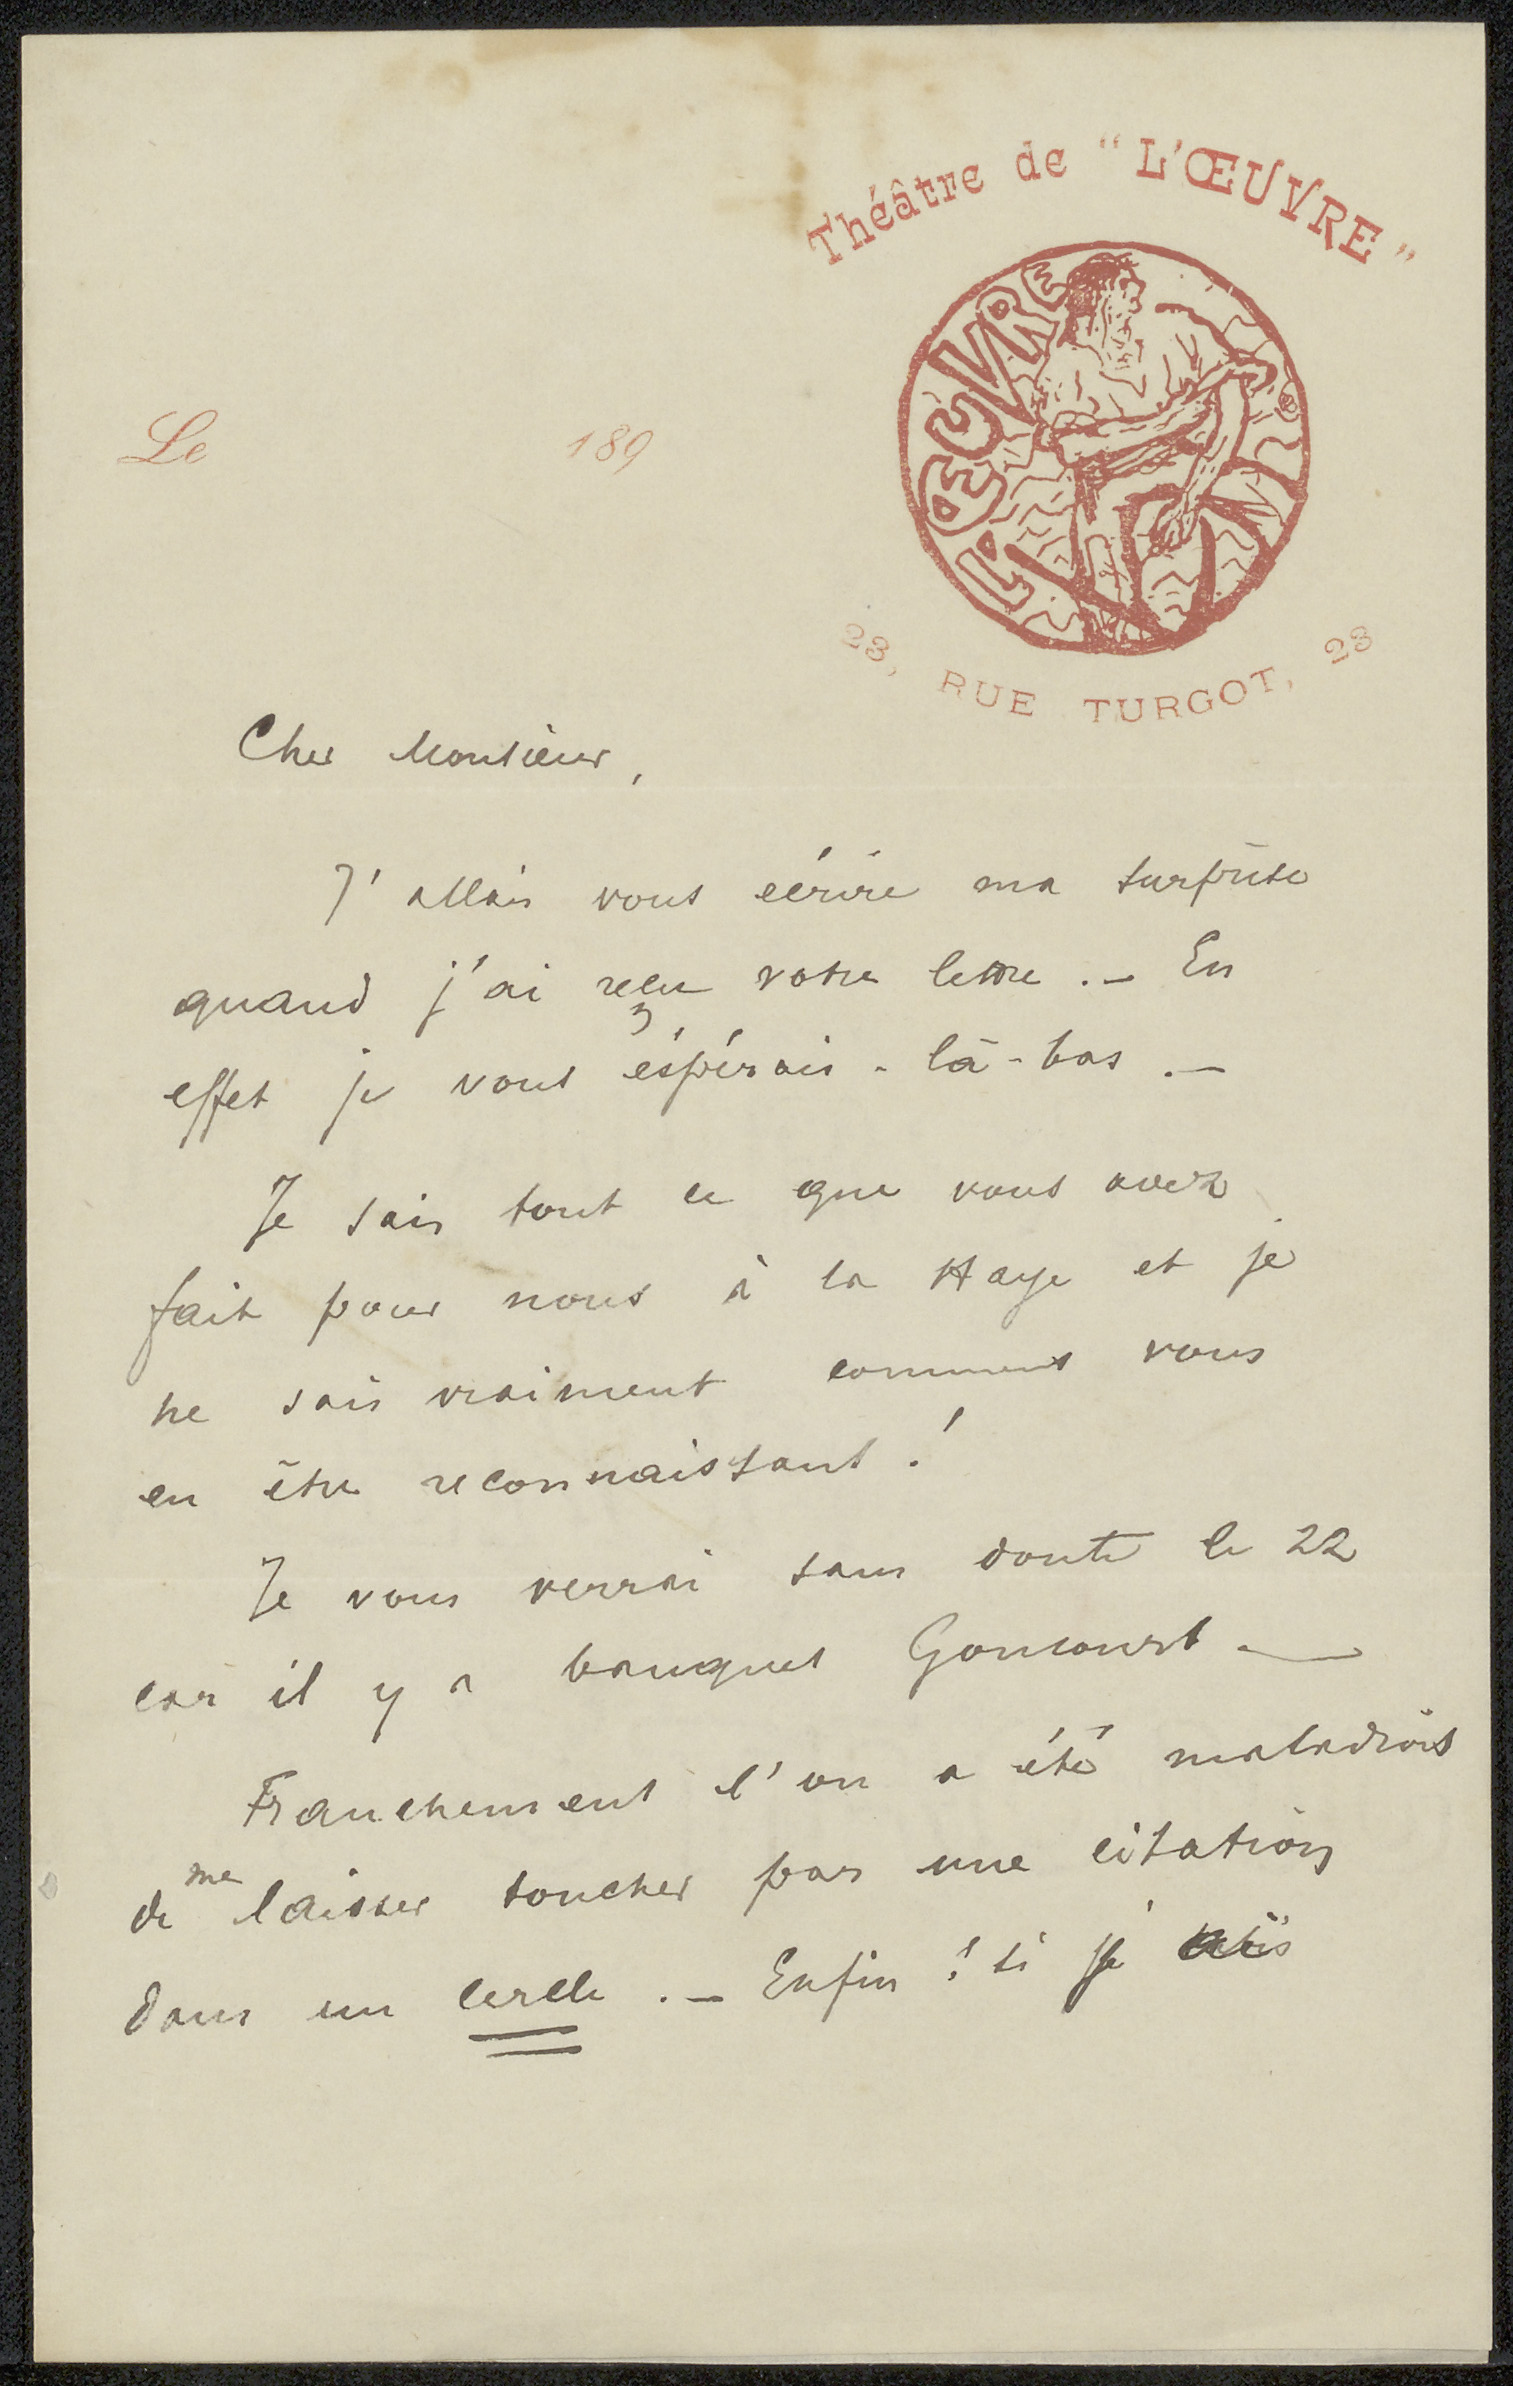 Théâtre de "L'ŒUVRE"
L'OEUVRE
23, RUE TURGOT, 23
Le 189
Cher Monsieur,
J'allais vous écrire ma surprise
quand j'ai reçu votre lettre. — En
effet je vous éspérais - là-bas. —
Je sais tout ce que vous avez
fait pour nous à la Haye et je
ne sais vraiment comment vous
en être reconnaissant !
Je vous verrai sans doute le 22
car il y a banquet Goncourt. —
Franchement l'on a été maladroit
de me laisser toucher par une citation
dans un cercle. — Enfin ! si je